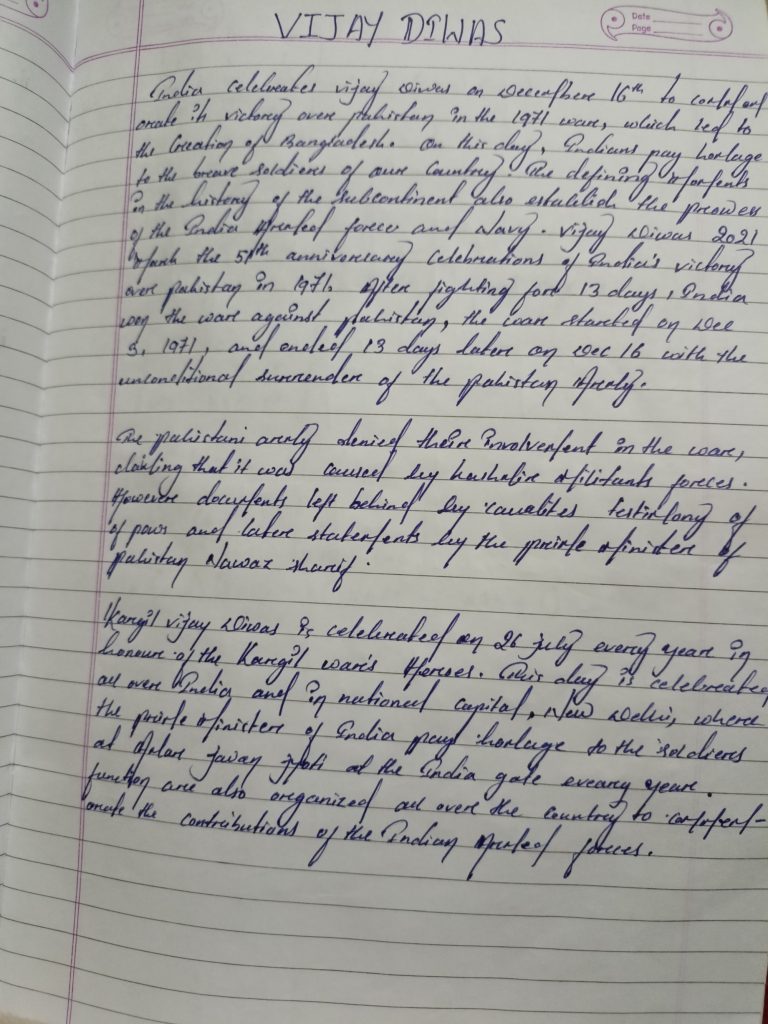 VIJAY DIWAS
Date
Page
India celebrates vijay Diwas on December 16th to commem
orate it victory over pakistan in the 1971 ware, which led to
the Creation of Bangladesh. On this day, Indians pay homage
to the breave soldiers of oure Country. The defining moments
in the history of the subcontinent also establish the prowess
of the India Armed forces and Navy. Vijay Diwas 2021
Mark the 50th anniversary celebrations of India's victory
over pakistan in 1971. After fighting fore 13 days, India
won the ware against pakistan, the ware started on Dec
3, 1971, and ended 13 days latere on Dec 16 with the
unconditional surrendere of the pakistan Army.
The pakistani army denied their involvement in the ware,
claiming that it was caused by kashmire militants forces.
Howevere documents left behind by caualites testimony of
of pows and latere statements by the prime ministere of
pakistan Nawaz sharif.
Kargil vijay Diwas is celebrated on 26 july every yeare in
honoure of the Kargil ware's Heroes. This day is celebrated
all overe India and in national capital, New Delhi, where
the prime ministere of India pay homage to the soldiers
at Amar jawan jyoti at the India gate eveary yeare.
function are also organized all over the country to commem-
orate the contributions of the Indian Armed forces.